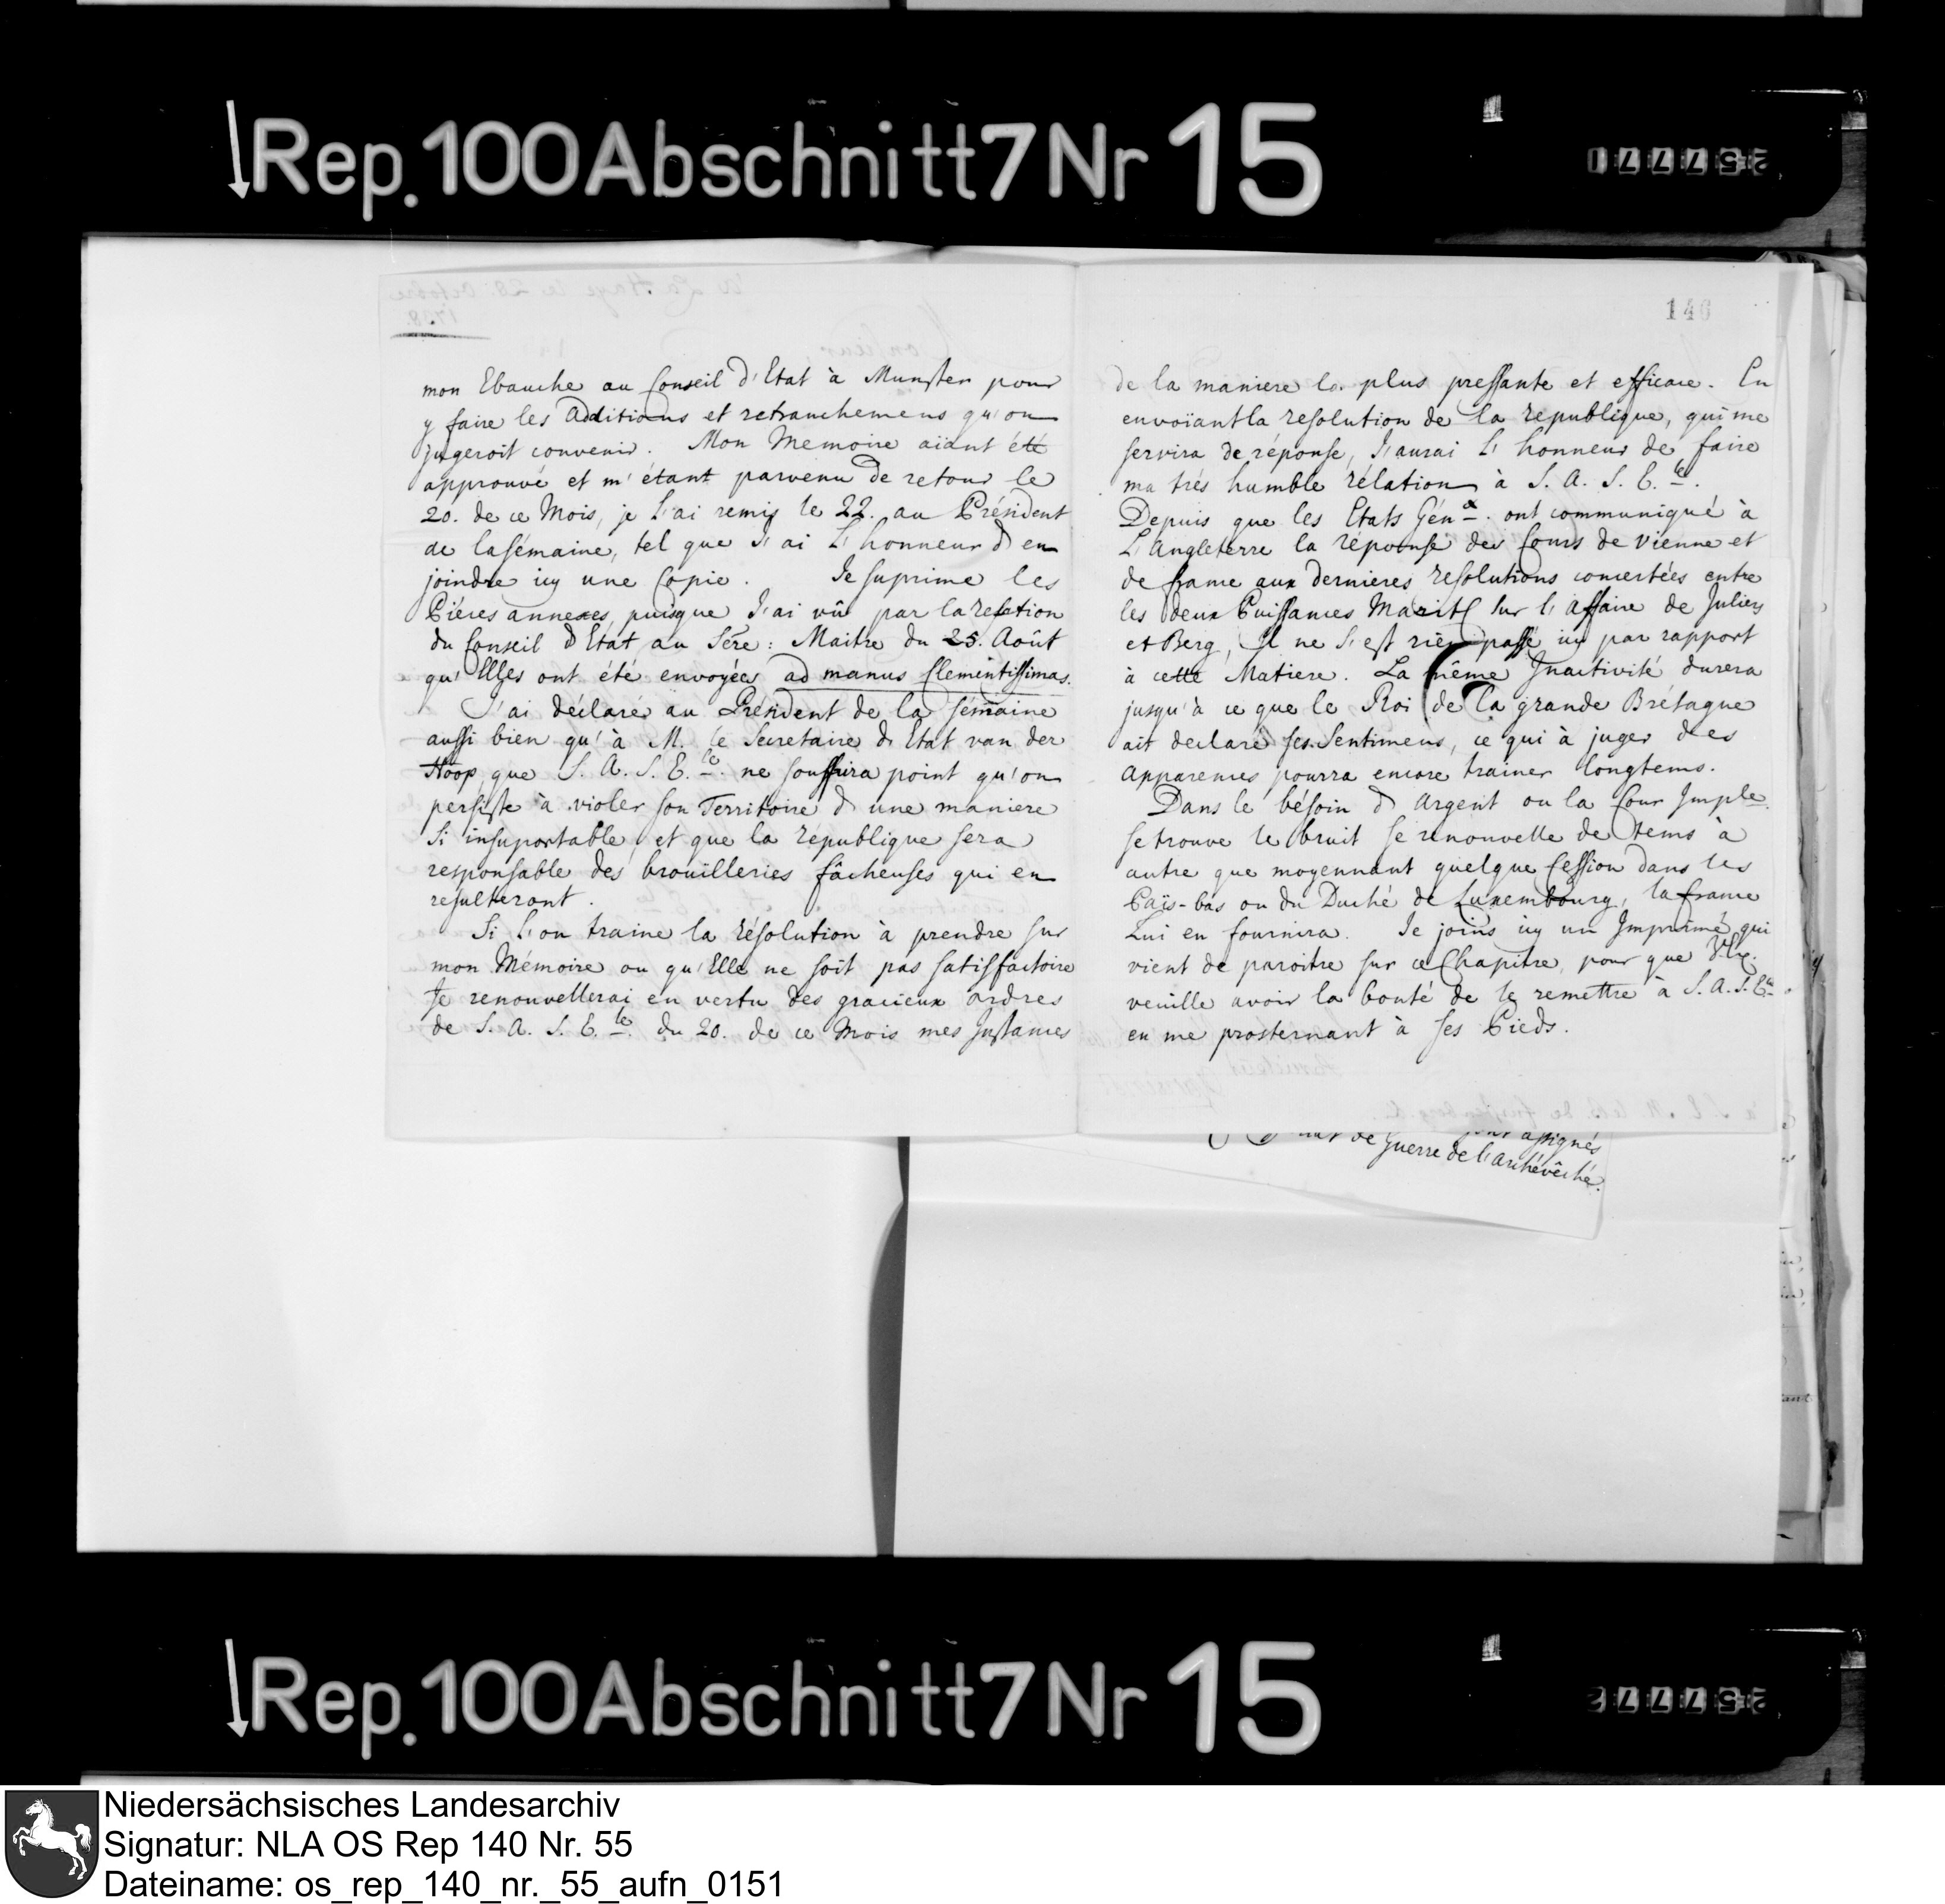 Rep.100Abschnitt7Nr 15
25771
mon Ebauche au Conseil d'Etat à Munster pour
y faire les Additions et retranchemens qu'on
jugeroit convenir. Mon Memoire aiant été
approuvé et m'étant parvenu de retour le
20. de ce Mois, je l'ai remis le 22. au Président
de la sémaine, tel que j'ai l'honneur d'en
joindre icy une Copie. Je suprime les
Piéces annexes, puisque j'ai vû par la relation
du Conseil d'Etat au Sére: Maitre du 25. Août
qu'Elles ont été envoyées ad manus Clementissimas.
J'ai déclaré au Président de la sémaine
aussi bien qu'à M. le Secretaire d'Etat van der
Hoop, que S. A. S. E.le ne souffrira point qu'on
persiste à violer son Territoire d'une maniere
si insuportable, et que la republique sera
responsable des brouilleries fâcheuses qui en
resulteront.
Si l'on traine la résolution à prendre sur
mon Mémoire ou qu'Elle ne soit pas satisfactoire
Je renouvellerai en vertu des gracieux ordres
de S. A. S. E.le du 20. de ce Mois mes Instances
140
de la maniere la plus pressante et efficace. En
envoïant la resolution de la republique, qui me
servira de réponse, j'aurai l'honneur de faire
ma trés humble rélation à S. A. S. E.le.
Depuis que les Etats Gén.x ont communiqué à
l'Angleterre la réponse des Cours de Vienne et
de france aux dernieres resolutions concertées entre
les deux Puissances Marit. sur l'affaire de Juliers
et Berg, Il ne s'est rien passé icy par rapport
à cette Matiere. La même Inactivité durera
jusqu'à ce que le Roi de la grande Brétagne
ait declaré ses Sentimens, ce qui à juger des
apparences pourra encore trainer longtems.
Dans le bésoin d'Argent ou la Cour Imple
se trouve le bruit se renouvelle de tems à
autre que moyennant quelque Cession dans les
Païs-bas ou du Duché de Luxembourg, la france
Lui en fournira. Je joins icy un Imprimé qui
vient de paroitre sur ce Chapitre, pour que V. Exc.
veuille avoir la bonté de le remettre à S. A. S. E.le
en me prosternant à ses Pieds.
assignés
de Guerre de l'Archévêché.
Rep.100Abschnitt7Nr 15
25772
Niedersächsisches Landesarchiv
Signatur: NLA OS Rep 140 Nr. 55
Dateiname: os_rep_140_nr._55_aufn_0151